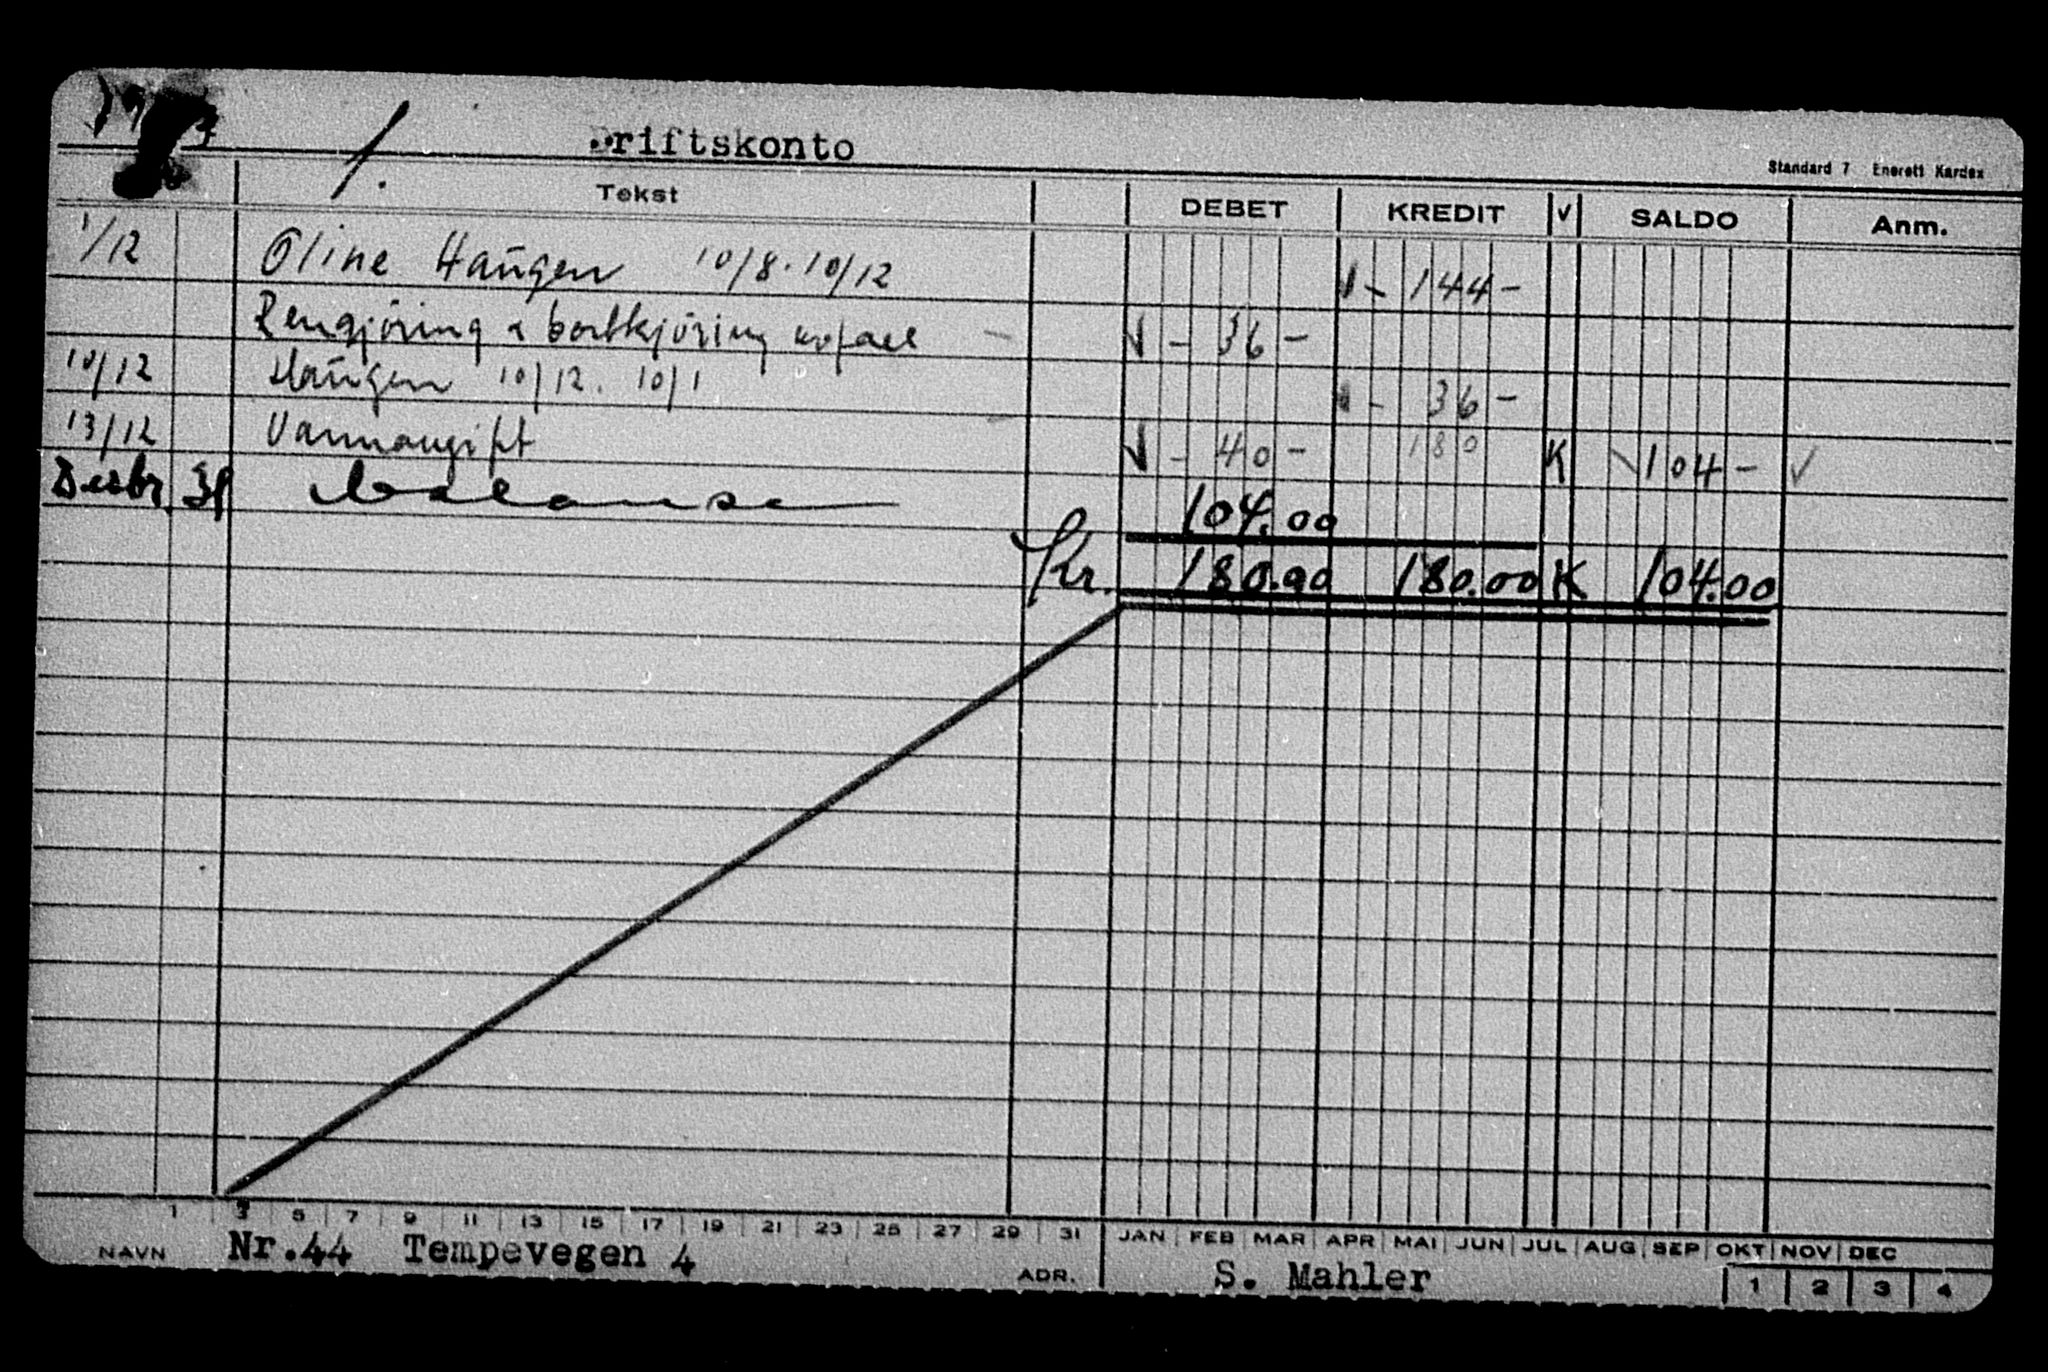 1.
Driftskonto
Standard 7 Enerett Kardex
Tekst DEBET KREDIT V SALDO Anm.
1/12 Oline Haŭgen 10/8. 10/12 - 144 -
Rengjöring & bortkjöring avfall - 36 -
10/12 Haŭgen 10/12. 10/1 - 36 -
13/12 Vannavgift - 40 - 180 K 104 -
Desbr. 31 balanse 104.00
Kr. 180.00 180.00 K 104.00
1 3 5 7 9 11 13 15 17 19 21 23 25 27 29 31 JAN FEB MAR APR MAI JUN JUL AUG SEP OKT NOV DEC
NAVN Nr.44 Tempevegen 4 ADR. S. Mahler 1 2 3 4